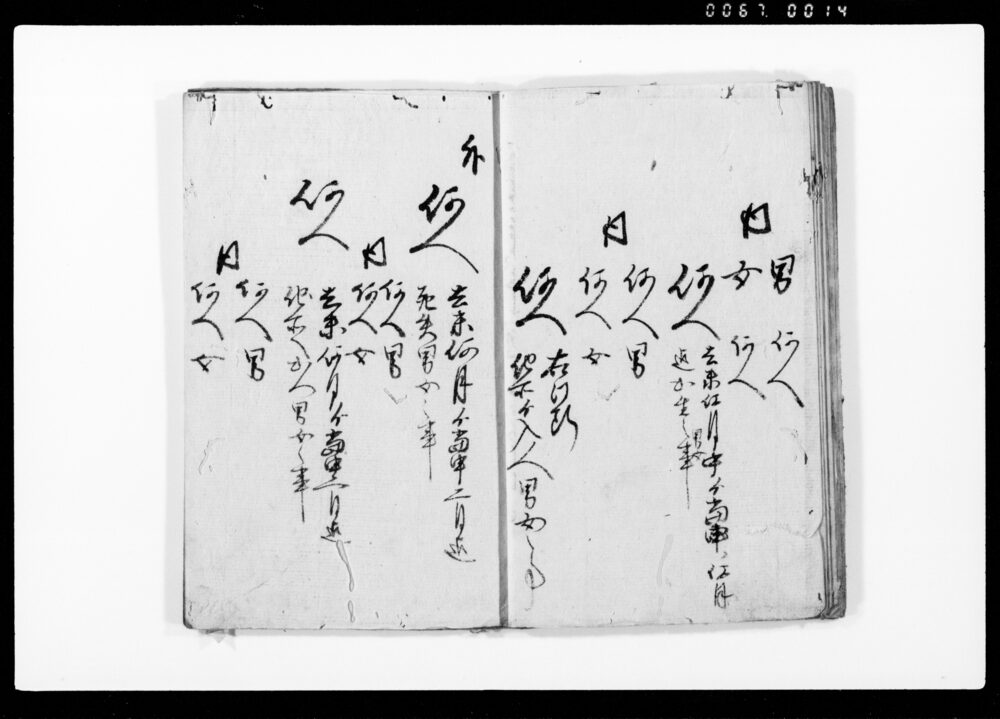 0067. 0014
内
男 何人
女 何人
何人
去未何月中ゟ当申ノ何月
迄出生之男女事
内
何人 男
何人 女
何人
右同断
他所ゟ入人男女之事
外
何人
去未何月ゟ当申二月迄
死失男女之事
内
何人 男
何人 女
何人
去未何月ゟ当申二月迄
他所へ出人男女之事
内
何人 男
何人 女